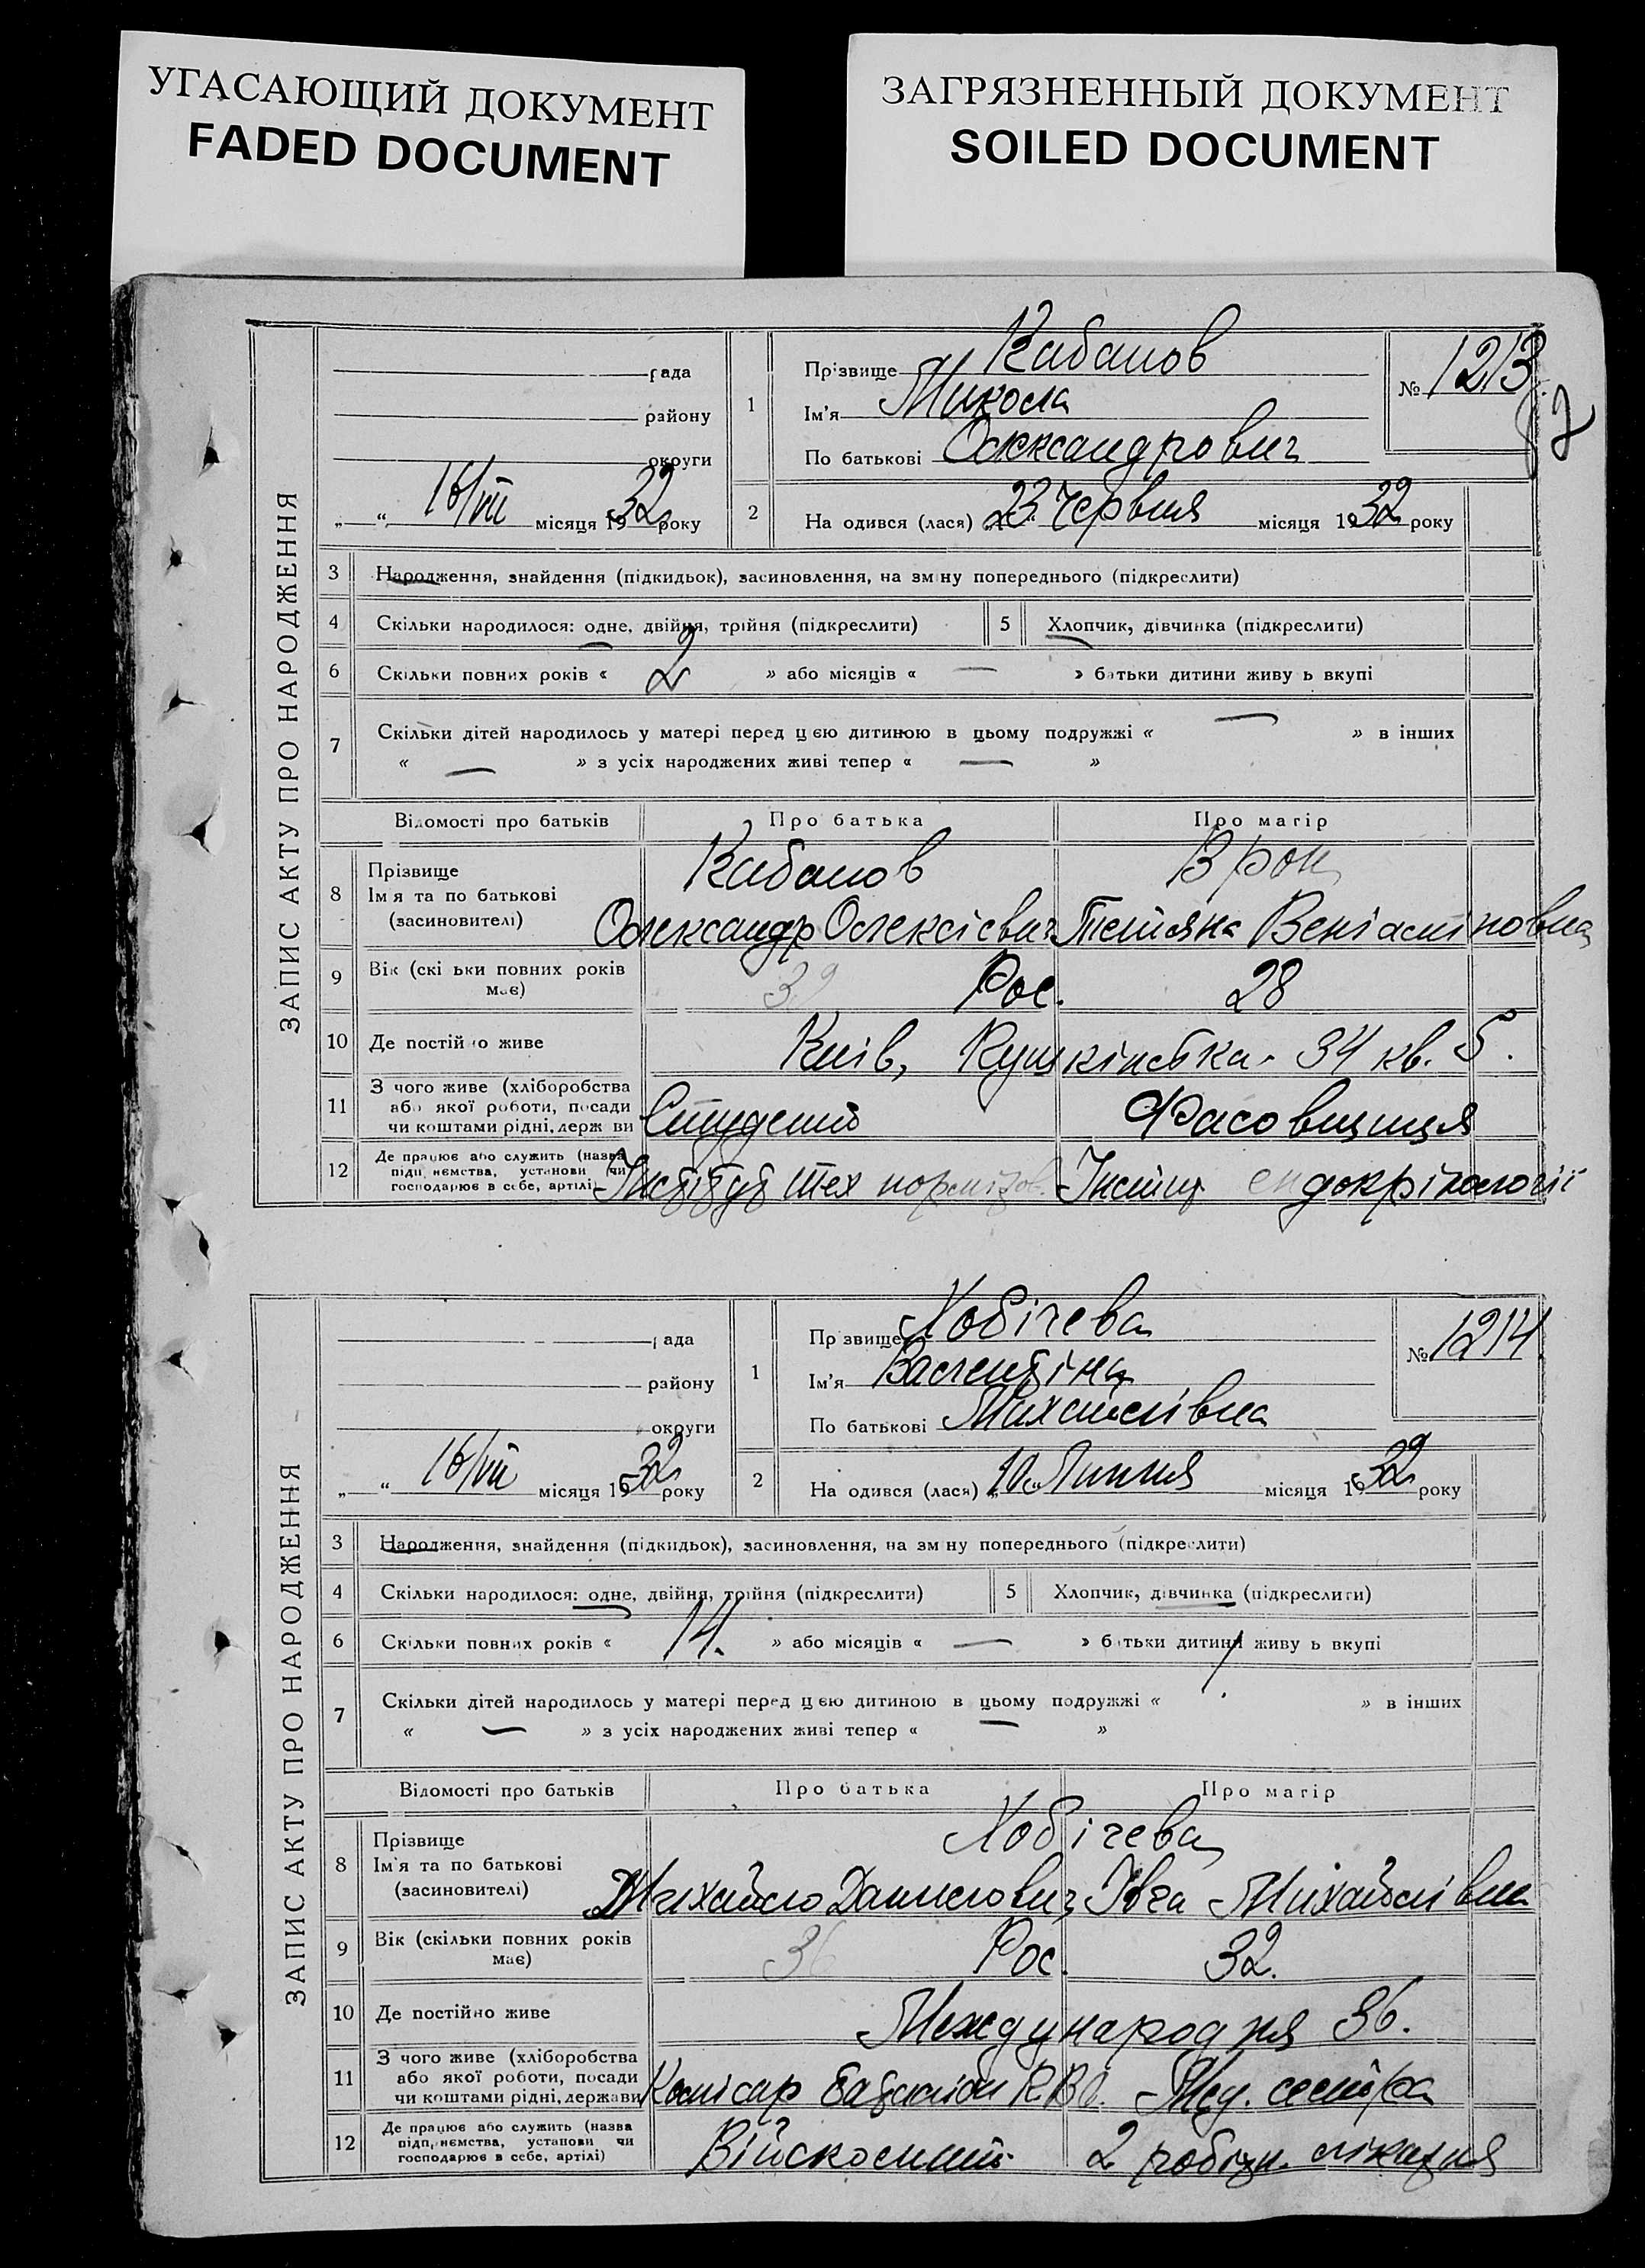 УГАСАЮЩИЙ ДОКУМЕНТ
FADED DOCUMENT
ЗАГРЯЗНЕННЫЙ ДОКУМЕНТ
SOILED DOCUMENT
ЗАПИС АКТУ ПРО НАРОДЖЕННЯ
рада
району
округи
16/VII місяця 1932 року
1
Прізвище Кабанов
Ім'я Микола
По батькові Олександрович
№ 1213
2
На одився (лася) 23 Червня місяця 1932 року
3 Народження, знайдення (підкидьок), засиновлення, на зм ну попереднього (підкреслити)
4 Скільки народилося: одне, двійня, трійня (підкреслити) 5 Хлопчик, дівчинка (підкреслити)
6 Скільки повних років « 2 » або місяців « — » батьки дитини живу ь вкупі
7 Скільки дітей народилось у матері перед цією дитиною в цьому подружжі « — » в інших
« — » з усіх народжених живі тепер « — »
Відомості про батьків Про батька Про матір
8 Прізвище
Ім я та по батькові
(засиновителі)
Кабанов
Олександр Олексієвич Тетяна Веніаміновна
9 Вік (скі ьки повних років має) Рос. 28
10 Де постійно живе Київ, 34 кв. 5.
11 З чого живе (хліборобства
або якої роботи, посади
чи коштами рідні, держ ви
Студент Фасовщиця
12 Де працює або служить (назва
підп иємства, установи чи
господарює в себе, артілі)
Інститут тех Інстит ендокрінології
ЗАПИС АКТУ ПРО НАРОДЖЕННЯ
рада
району
округи
16/VII місяця 1932 року
1
Пр звище Хобічева
Ім'я Валентіна
По батькові Михайлівна
№ 1214
2
На одився (лася) „10“ Липня місяця 1932 року
3 Народження, знайдення (підкидьок), засиновлення, на зм ну попереднього (підкреслити)
4 Скільки народилося: одне, двійня, трійня (підкреслити) 5 Хлопчик, дівчинка (підкреслити)
6 Скільки повних років « 14. » або місяців « — » батьки дитини живу ь вкупі
7 Скільки дітей народилось у матері перед цією дитиною в цьому подружжі « 1 » в інших
« — » з усіх народжених живі тепер « — »
Відомості про батьків Про батька Про матір
8 Прізвище
Ім'я та по батькові
(засиновителі)
Хобічева
Михайло Данилович Михайлівна
9 Вік (скільки повних років має) 36 Рос. 32.
10 Де постійно живе Международня 36.
11 З чого живе (хліборобства
або якої роботи, посади
чи коштами рідні, держави
Комісар Мед. сестра
12 Де працює або служить (назва
підприємства, установи чи
господарює в себе, артілі)
2 робітн. лікарня